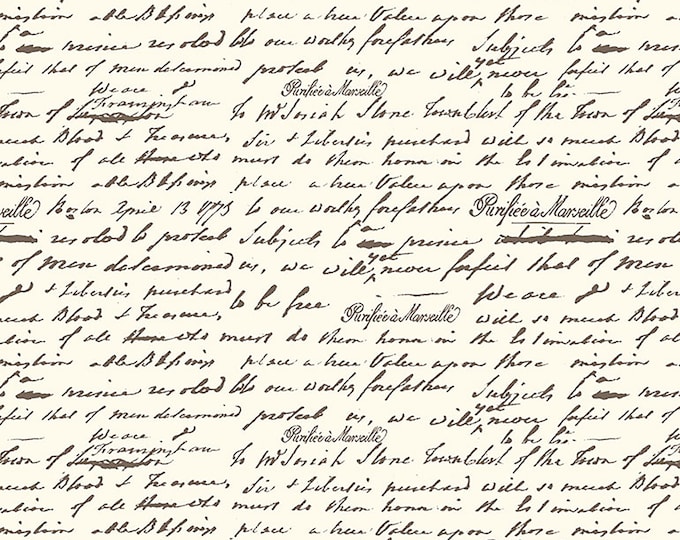 mission able Blessings place a true Value upon those mission a
to a prince resolved to our worthy forefathers Subjects to a prince
forfeit that of men determined protect us, we will yet never forfeit that of
We are & Purifiée à Marseille to be
Town of Framingham To Mr Josiah Stone Town Clerk of the Town of
much Blood & Treasure, Sir & Liberties purchased with so much Bloo
of all who must do them honor in the Estimation of al
mission able Blessings place a true Value upon those mission able
seille Boston April 13 1773 to our worthy forefathers Purifiée à Marseille Boston
resolved to protect Subjects to a prince resolved
of men determined us, we will yet never forfeit that of man
& Liberties purchased to be free Purifiée à Marseille We are & Liber
much Blood & Treasure, with so much Bloo
of all who must do them honor in the Estimation of al
mission able Blessings place a true Value upon those mission a
to a prince resolved to our worthy forefathers Subjects to a prince
forfeit that of men determined protect us, we will yet never forfeit that of
We are & Purifiée à Marseille to be
Town of Framingham To Mr Josiah Stone Town Clerk of the Town of
much Blood & Treasure, Sir & Liberties purchased with so much Bloo
of all who must do them honor in the Estimation of al
mission able Blessings place a true Value upon those mission a